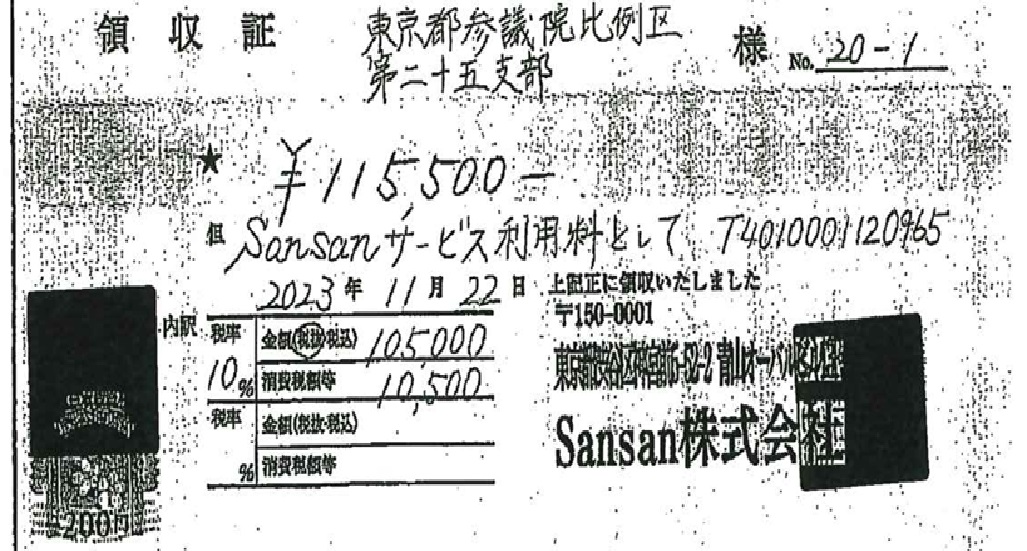 領収証 東京都参議院比例区 様 No. 20-1
第二十五支部
★ ¥115,500-
但 Sansanサービス利用料として T4010001120965
2023年 11月 22日 上記正に領収いたしました
〒150-0001
内訳 税率 10% 金額(税抜・税込) 105,000
消費税額等 10,500
東京都渋谷区神宮前5-52-2 青山オーバルビル13F
税率 % 金額(税抜・税込)
消費税額等
Sansan株式会社
200円